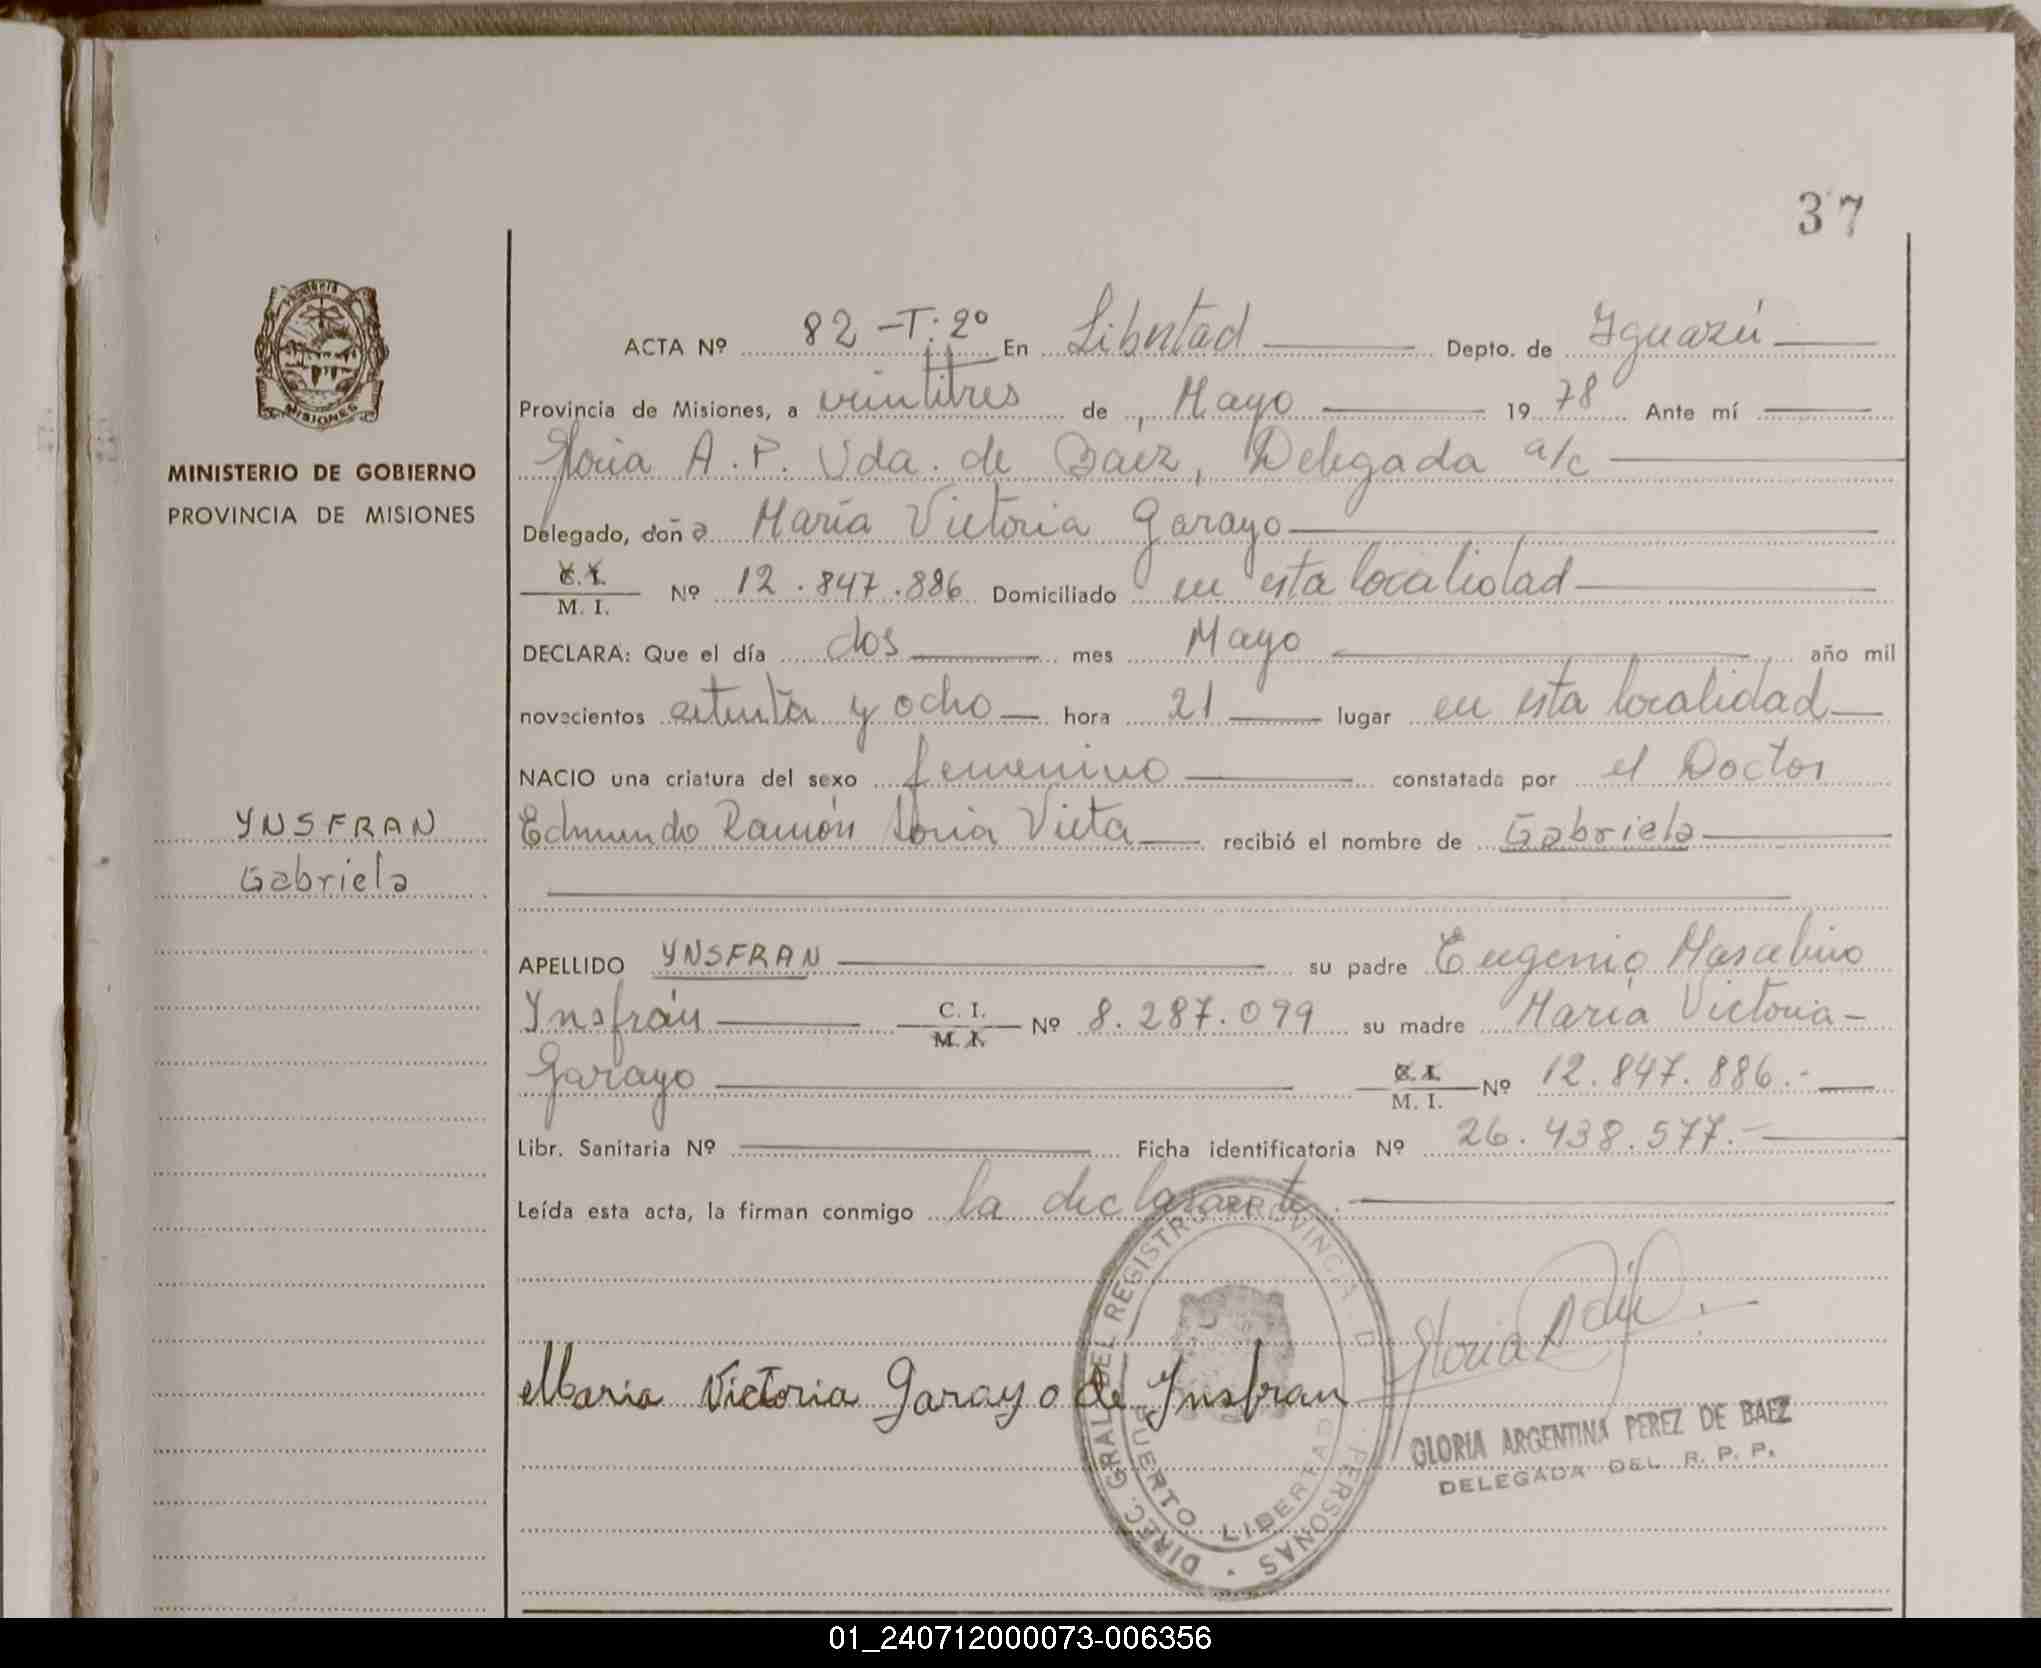 37
PROVINCIA DE
MISIONES
MINISTERIO DE GOBIERNO
PROVINCIA DE MISIONES
YNSFRAN
Gabriela
ACTA Nº 82 -T: 2º En Libertad Depto. de Iguazú
Provincia de Misiones, a veintitres de Mayo 19 78 Ante mí
Gloria A. P. Vda. de Báez, Delegada a/c
Delegado, doña María Victoria Garayo
C. I.
M. I. Nº 12.847.886 Domiciliado en esta localidad
DECLARA: Que el día dos mes Mayo año mil
novecientos setenta y ocho hora 21 lugar en esta localidad
NACIO una criatura del sexo femenino constatada por el Doctor
Edmundo Ramón Soria Vieta recibió el nombre de Gabriela
APELLIDO YNSFRAN su padre Eugenio Marcelino
Ynsfrán C. I. M. I. Nº 8.287.099 su madre María Victoria
Garayo C. I. M. I. Nº 12.847.886.-
Libr. Sanitaria Nº Ficha identificatoria Nº 26.438.577.-
Leída esta acta, la firman conmigo la declarante.
Maria Victoria Garayo de Ynsfran
DIREC. GRAL. DEL REGISTRO PROVINCIAL D PERSONAS
PUERTO LIBERTAD
GLORIA ARGENTINA PEREZ DE BAEZ
DELEGADA DEL R. P. P.
01_240712000073-006356